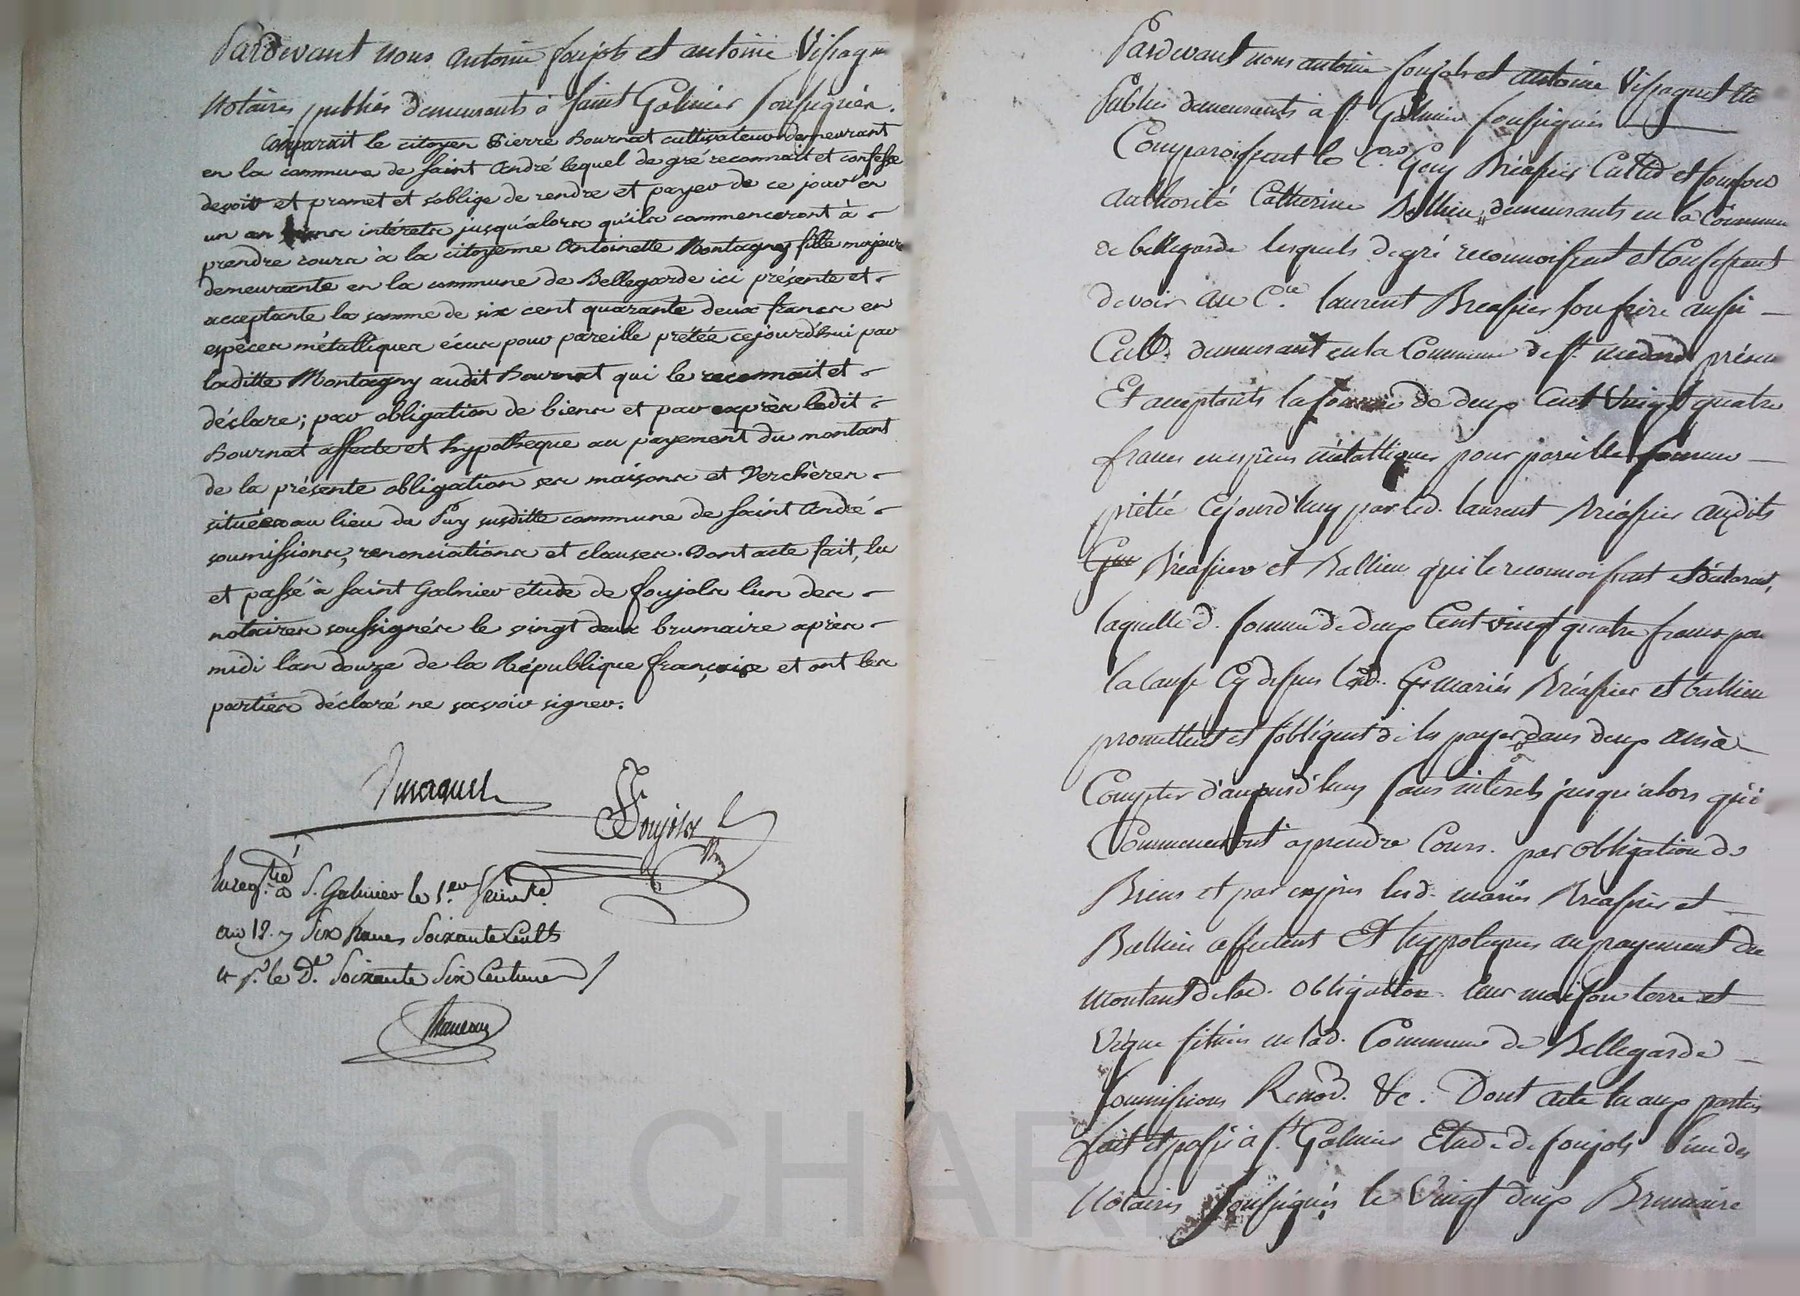 Pardevant nous antoine foujols et antoine Vissaguet
Notaires publics demeurants à Saint Galmier soussignés.
Comparait le citoyen Pierre Bournat cultivateur demeurant
en la commune de saint André lequel de gré reconnait et confesse
devoir et promet et s'oblige de rendre et payer de ce jour en
un an sans intérets jusqu'alors qu'ils commenceront à -
prendre cours à la citoyenne Antoinette Montagny fille majeure
demeurante en la commune de Bellegarde ici présente et -
acceptante la somme de six cent quarante deux francs en
espèces métalliques écus pour pareille prétée cejourd'hui par
laditte Montagny audit Bournat qui le reconnait et -
déclare; par obligation de biens et par exprès ledit -
Bournat affecte et hypothèque au payement du montant
de la présente obligation ses maisons et Verchères -
situées au lieu de Puy susditte commune de saint André -
soumissions, renonciations et clauses. Dont acte fait, lu
et passé à saint Galmier étude de foujols l'un des -
notaires soussignés le vingt deux brumaire après -
midi l'an douze de la République française et ont les
parties déclaré ne savoir signer.
Foujols
Enregtré à St. Galmier le 1.er frimre
an 12. Six francs Soixante Cents
et pr. le De. Soixante Six Centimes
Pardevant nous antoine foujols et antoine Vissaguet No
Publics demeurants à St. Galmier soussignés
Comparoissent le Cen Guy Bréassier Cultid et sous son
authorité Catherine Ballieu, demeurants en la Commune
de bellegarde lesquels de gré reconnoissent et Confessent
devoir au Cen. laurent Breassier son frère aussi -
Cult. demeurant en la Commune de St. medard présent
Et acceptants la somme de deux Cent Vingt quatre
francs en espèces métalliques pour pareille somme -
prétée Cejourd'huy par led. laurent Bréassier audits
Guy Bréassier et Ballieu qui le reconnoissent et déclarent,
laquelle d. somme de deux Cent vingt quatre francs par
la cause Cy dessus lesd. mariés Bréassier et ballieu
promettent et s'obligent de les payer dans deux ans à -
Compter d'aujourd'huy sans intérets jusqu'alors qu'ils
Commenceront à prendre Cours. par obligation de
Biens et par exprès lesd. mariés Bréassier et -
Ballieu affectent Et hypoteques au payement du
montant de lad. obligation leur maison terre et
vigne situés en lad. Commune de Bellegarde -
soumissions Renon. &c. Dont acte lu aux parties
fait et passé à St. Galmier Etude de foujols l'un des
Notaires soussignés le Vingt deux Brumaire
Pascal CHAREYRON